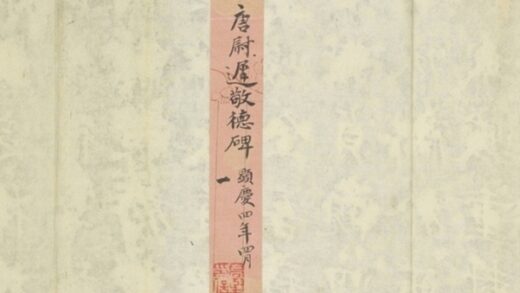 唐尉遲敬德碑
顯慶四年四月
一